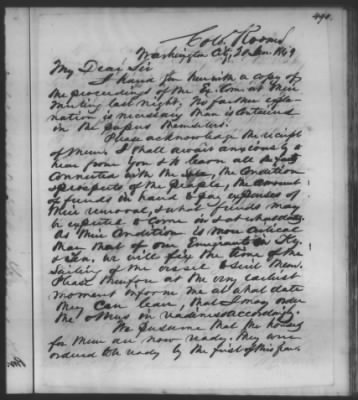 490.
Col. Rooms
Washington City, 20 Jan. 1849
My Dear Sir
I hand you herewith a copy of
the proceedings of the Ex. Com. at their
meeting last night, No farther expla-
nation is necessary than is contained
in the papers themselves.
Please acknowledge the receipt
of them. I shall await anxiously to
hear from you & to learn all the facts
connected with the the condition
& prospects of the people, the amount
of funds in hand to pay expenses of
their removal, & what funds may
be expected to come in & at what day.
As their condition is more critical
than that of our Emigrants in Ky.
& Ten. we will fix the time of the
sailing of the vessel to suit them.
Please therefore at the very earliest
moment inform me at what date
they can leave, that I may order
the others in readiness accordingly.
We presume that the houses
for them are now ready. They were
ordered to be ready by the first of this